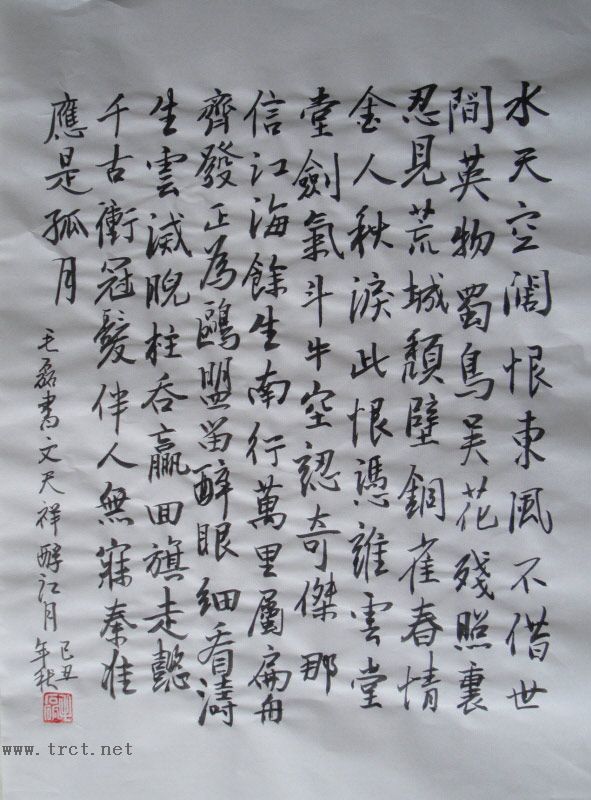 水天空闊恨東風不借世
間英物蜀鳥吳花殘照裏
忍見荒城頹壁銅雀春情
金人秋淚此恨憑誰雲堂
堂劍氣斗牛空認奇傑那
信江海餘生南行萬里屬扁舟
齊發正為鷗盟留醉眼細看濤
生雲滅睨柱吞贏回旗走懿
千古衝冠髮伴人無寐秦淮
應是孤月
毛磊書文天祥酹江月
己丑
年秋
www.trct.net